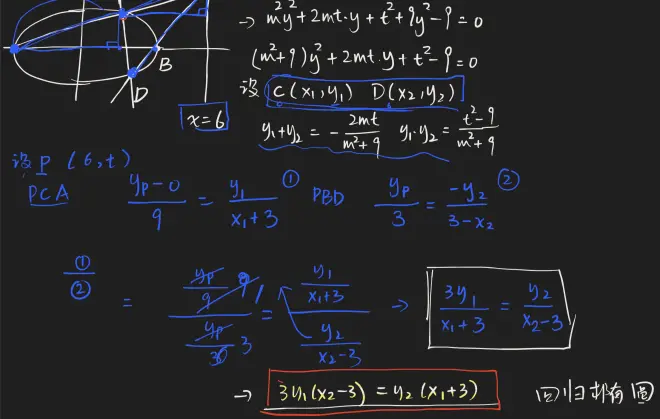 → m²y²+2mt·y+t²+9y²-9=0
(m²+9)y²+2mt·y+t²-9=0
B
设 C(x₁,y₁) D(x₂,y₂)
D
x=6
y₁+y₂ = -2mt/(m²+9) y₁·y₂ = (t²-9)/(m²+9)
设P (6,t)
PCA (yP-0)/9 = y₁/(x₁+3) ① PBD yP/3 = -y₂/(3-x₂) ②
①/② = (yP/9)/(yP/3) = (y₁/(x₁+3))/(y₂/(x₂-3)) → 3y₁/(x₁+3) = y₂/(x₂-3)
→ 3y₁(x₂-3) = y₂(x₁+3) 回归